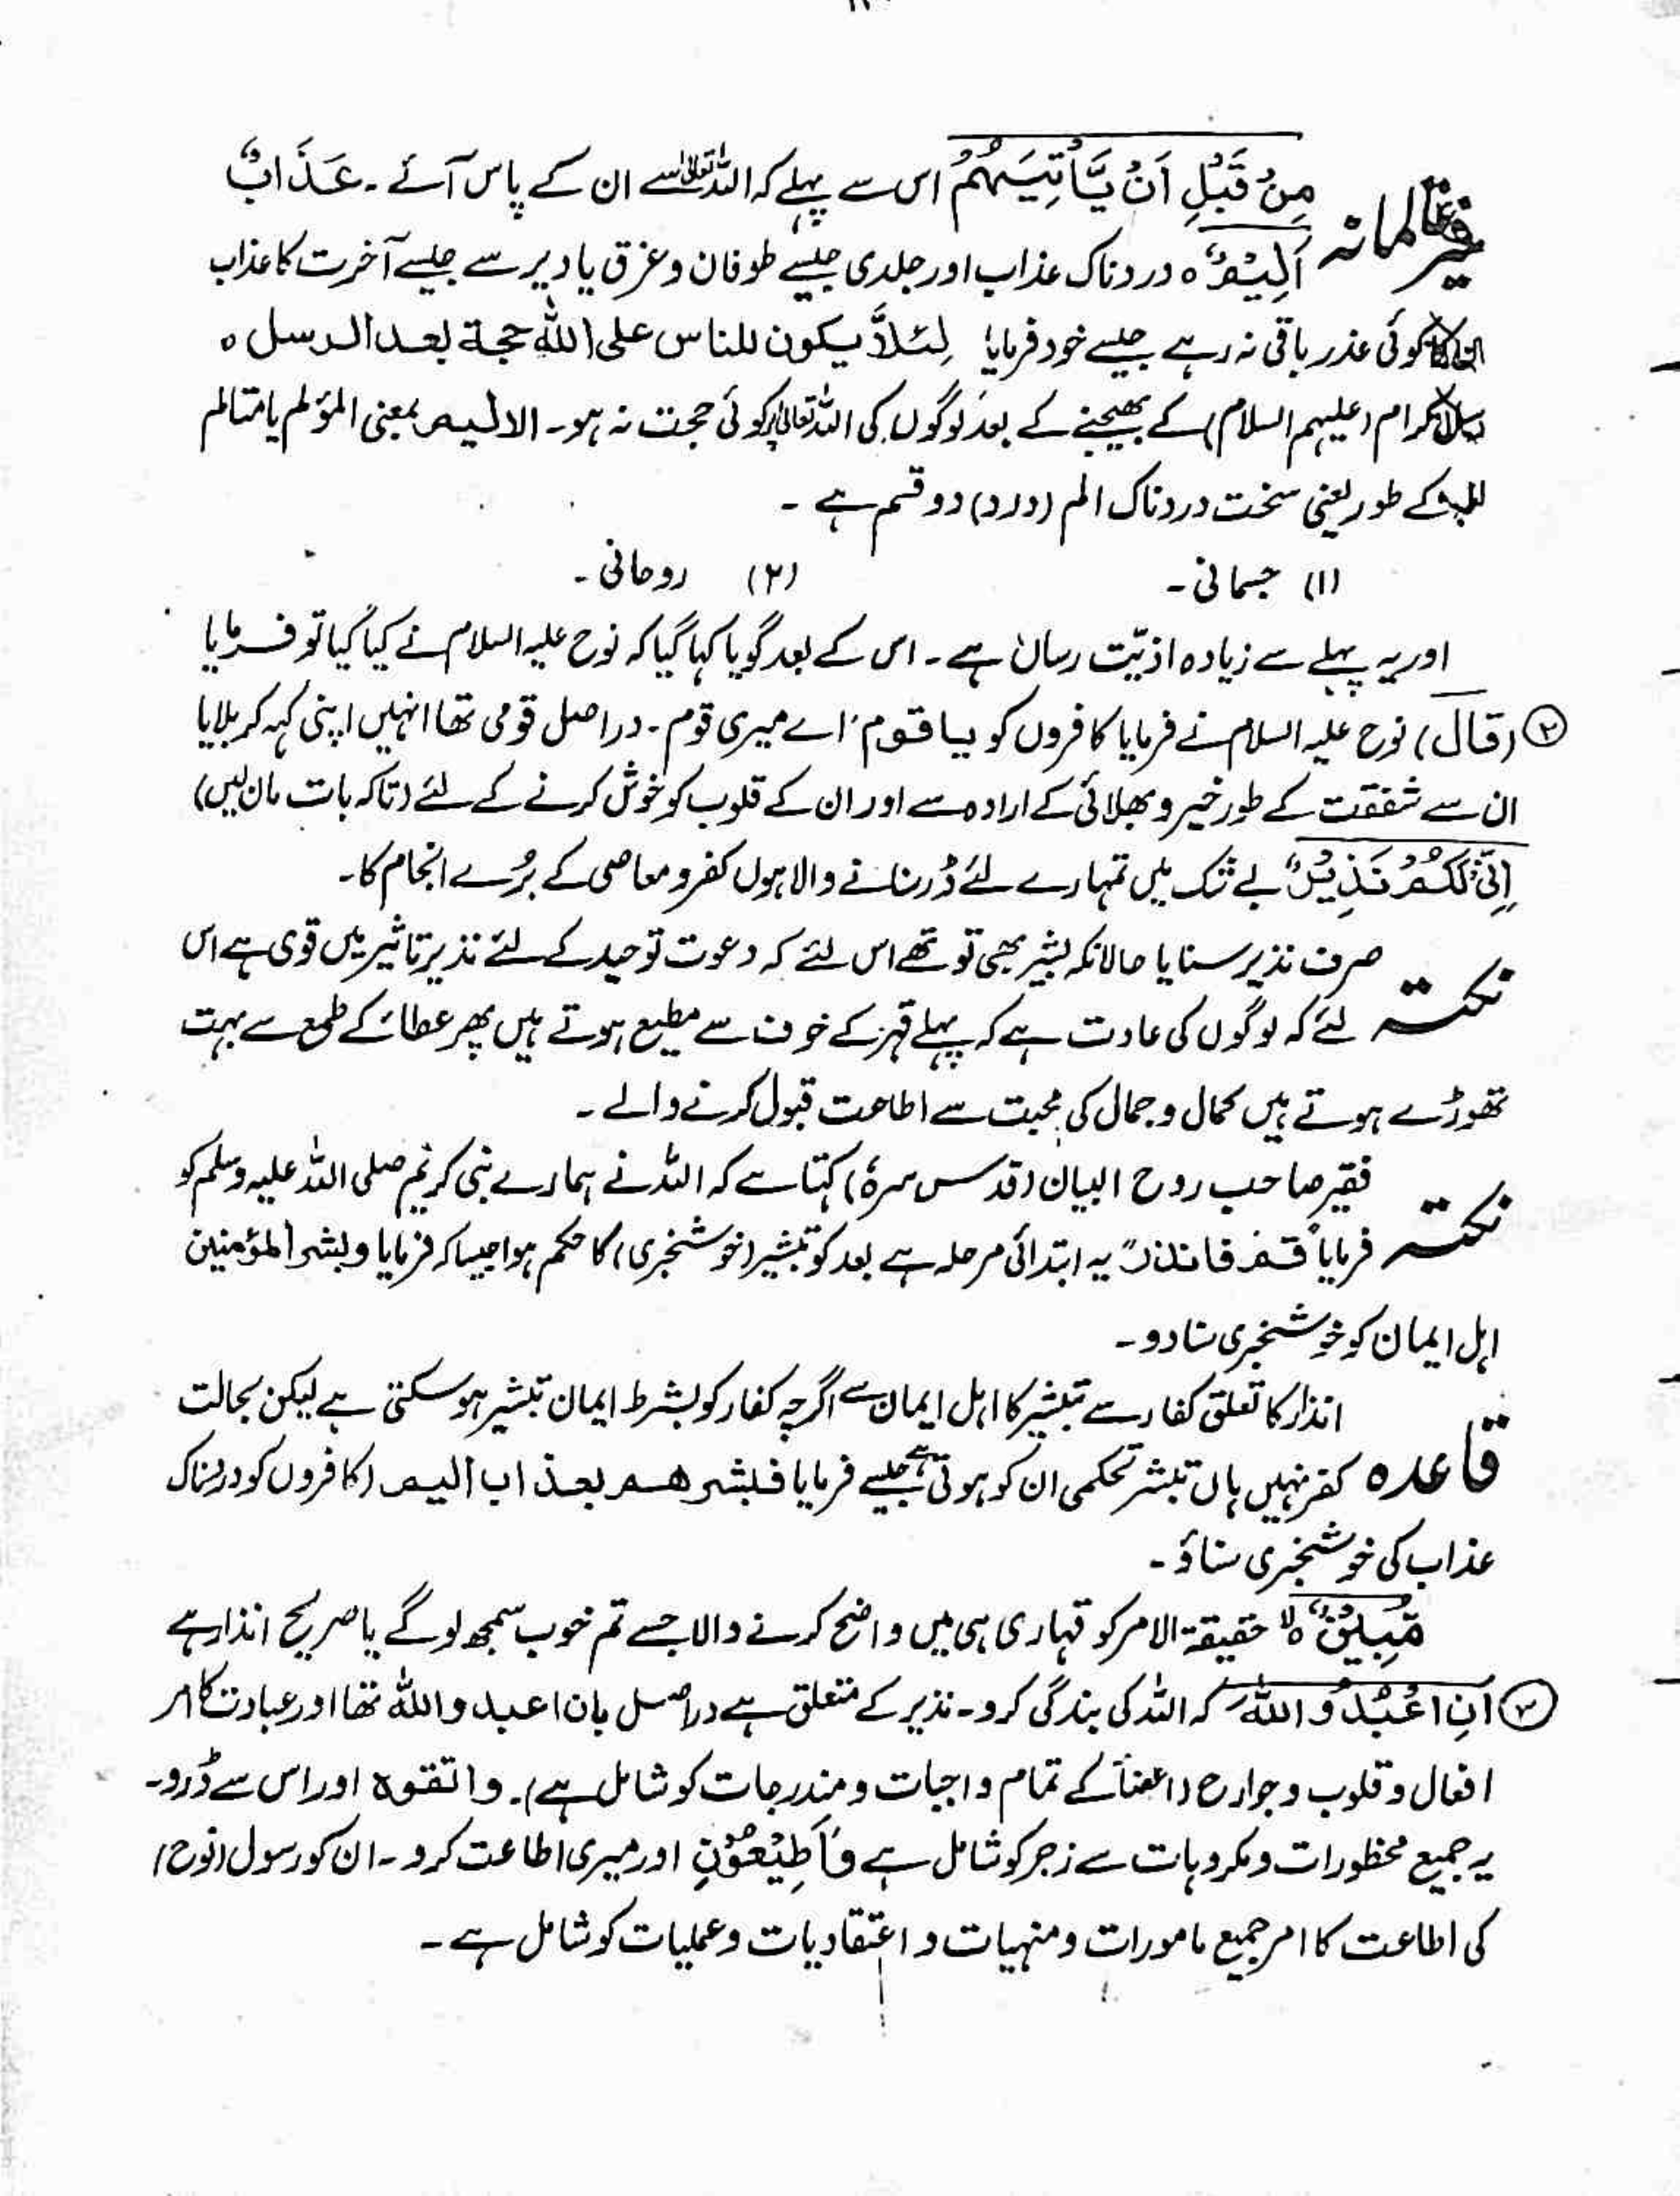 تفسیر عالمانہ مِنْ قَبْلِ اَنْ یَّاْتِیَہُمْ اس سے پہلے کہ اللہ تعالیٰ سے ان کے پاس آئے ۔ عَذَابٌ
اَلِیْمٌ ہ دردناک عذاب اور جلدی جیسے طوفان و غرق یا دیر سے جیسے آخرت کا عذاب
کوئی عذر باقی نہ رہے جیسے خود فرمایا لِئَلَّا یکون للناس علی اللہ حجة بعد الرسل ہ
رسل کرام (علیہم السلام) کے بھیجنے کے بعد لوگوں کی اللہ تعالیٰ پر کوئی حجت نہ ہو ۔ الالیم بمعنی المؤلم یا متالم
کے طور یعنی سخت دردناک الم (درد) دو قسم ہے ۔
(۱) جسمانی ۔ (۲) روحانی ۔
اور یہ پہلے سے زیادہ اذیّت رساں ہے ۔ اس کے بعد گویا کہا گیا کہ نوح علیہ السلام نے کیا کیا تو فرمایا
۲ (قال) نوح علیہ السلام نے فرمایا کافروں کو یاقوم اے میری قوم ۔ دراصل قومی تھا انہیں اپنی کہہ کر بلایا
ان سے شفقت کے طور خیر و بھلائی کے ارادہ سے اور ان کے قلوب کو خوش کرنے کے لئے (تاکہ بات مان لیں)
اِنِّیْ لَکُمْ نَذِیْرٌ بے شک میں تمہارے لئے ڈر سنانے والا ہوں کفر و معاصی کے بُرے انجام کا ۔
نکتہ صرف نذیر سنایا حالانکہ بشیر بھی تو تھے اس لئے کہ دعوت توحید کے لئے نذیر تاثیر میں قوی ہے اس
لئے کہ لوگوں کی عادت ہے کہ پہلے قہر کے خوف سے مطیع ہوتے ہیں پھر عطاء کے طمع سے بہت
تھوڑے ہوتے ہیں کمال و جمال کی محبت سے اطاعت قبول کرنے والے ۔
نکتہ فقیر صاحب روح البیان (قدس سرہٗ) کہتا ہے کہ اللہ نے ہمارے نبی کریم صلی اللہ علیہ وسلم کو
فرمایا "قم فانذر" یہ ابتدائی مرحلہ ہے بعد کو تبشیر (خوشخبری) کا حکم ہوا جیسا کہ فرمایا وبشر المؤمنین
اہل ایمان کو خوشخبری سنا دو ۔
قاعدہ انذار کا تعلق کفار سے تبشیر کا اہل ایمان سے اگرچہ کفار کو بشرط ایمان تبشیر ہو سکتی ہے لیکن بحالت
کفر نہیں ہاں تبشیر تحکمی ان کو ہوتی ہے جیسے فرمایا فبشر ھم بعذاب الیم (کافروں کو دردناک
عذاب کی خوشخبری سناؤ ۔
مُّبِیْنٌ ہ حقیقة الامر کو تمہاری ہی میں واضح کرنے والا جسے تم خوب سمجھ لو گے یا صریح انذار ہے
۳ اَنِ اعْبُدُوا اللّٰہَ کہ اللہ کی بندگی کرو ۔ نذیر کے متعلق ہے دراصل بان اعبدواللہ تھا اور عبادت کا امر
افعال و قلوب و جوارح (اعضاء کے تمام واجبات و مندرجات کو شامل ہے) ۔ واتقوہ اور اس سے ڈرو ۔
یہ جمیع محظورات و مکروہات سے زجر کو شامل ہے وَاَطِیْعُوْنِ اور میری اطاعت کرو ۔ ان کو رسول (نوح)
کی اطاعت کا امر جمیع مامورات و منہیات و اعتقادیات و عملیات کو شامل ہے ۔